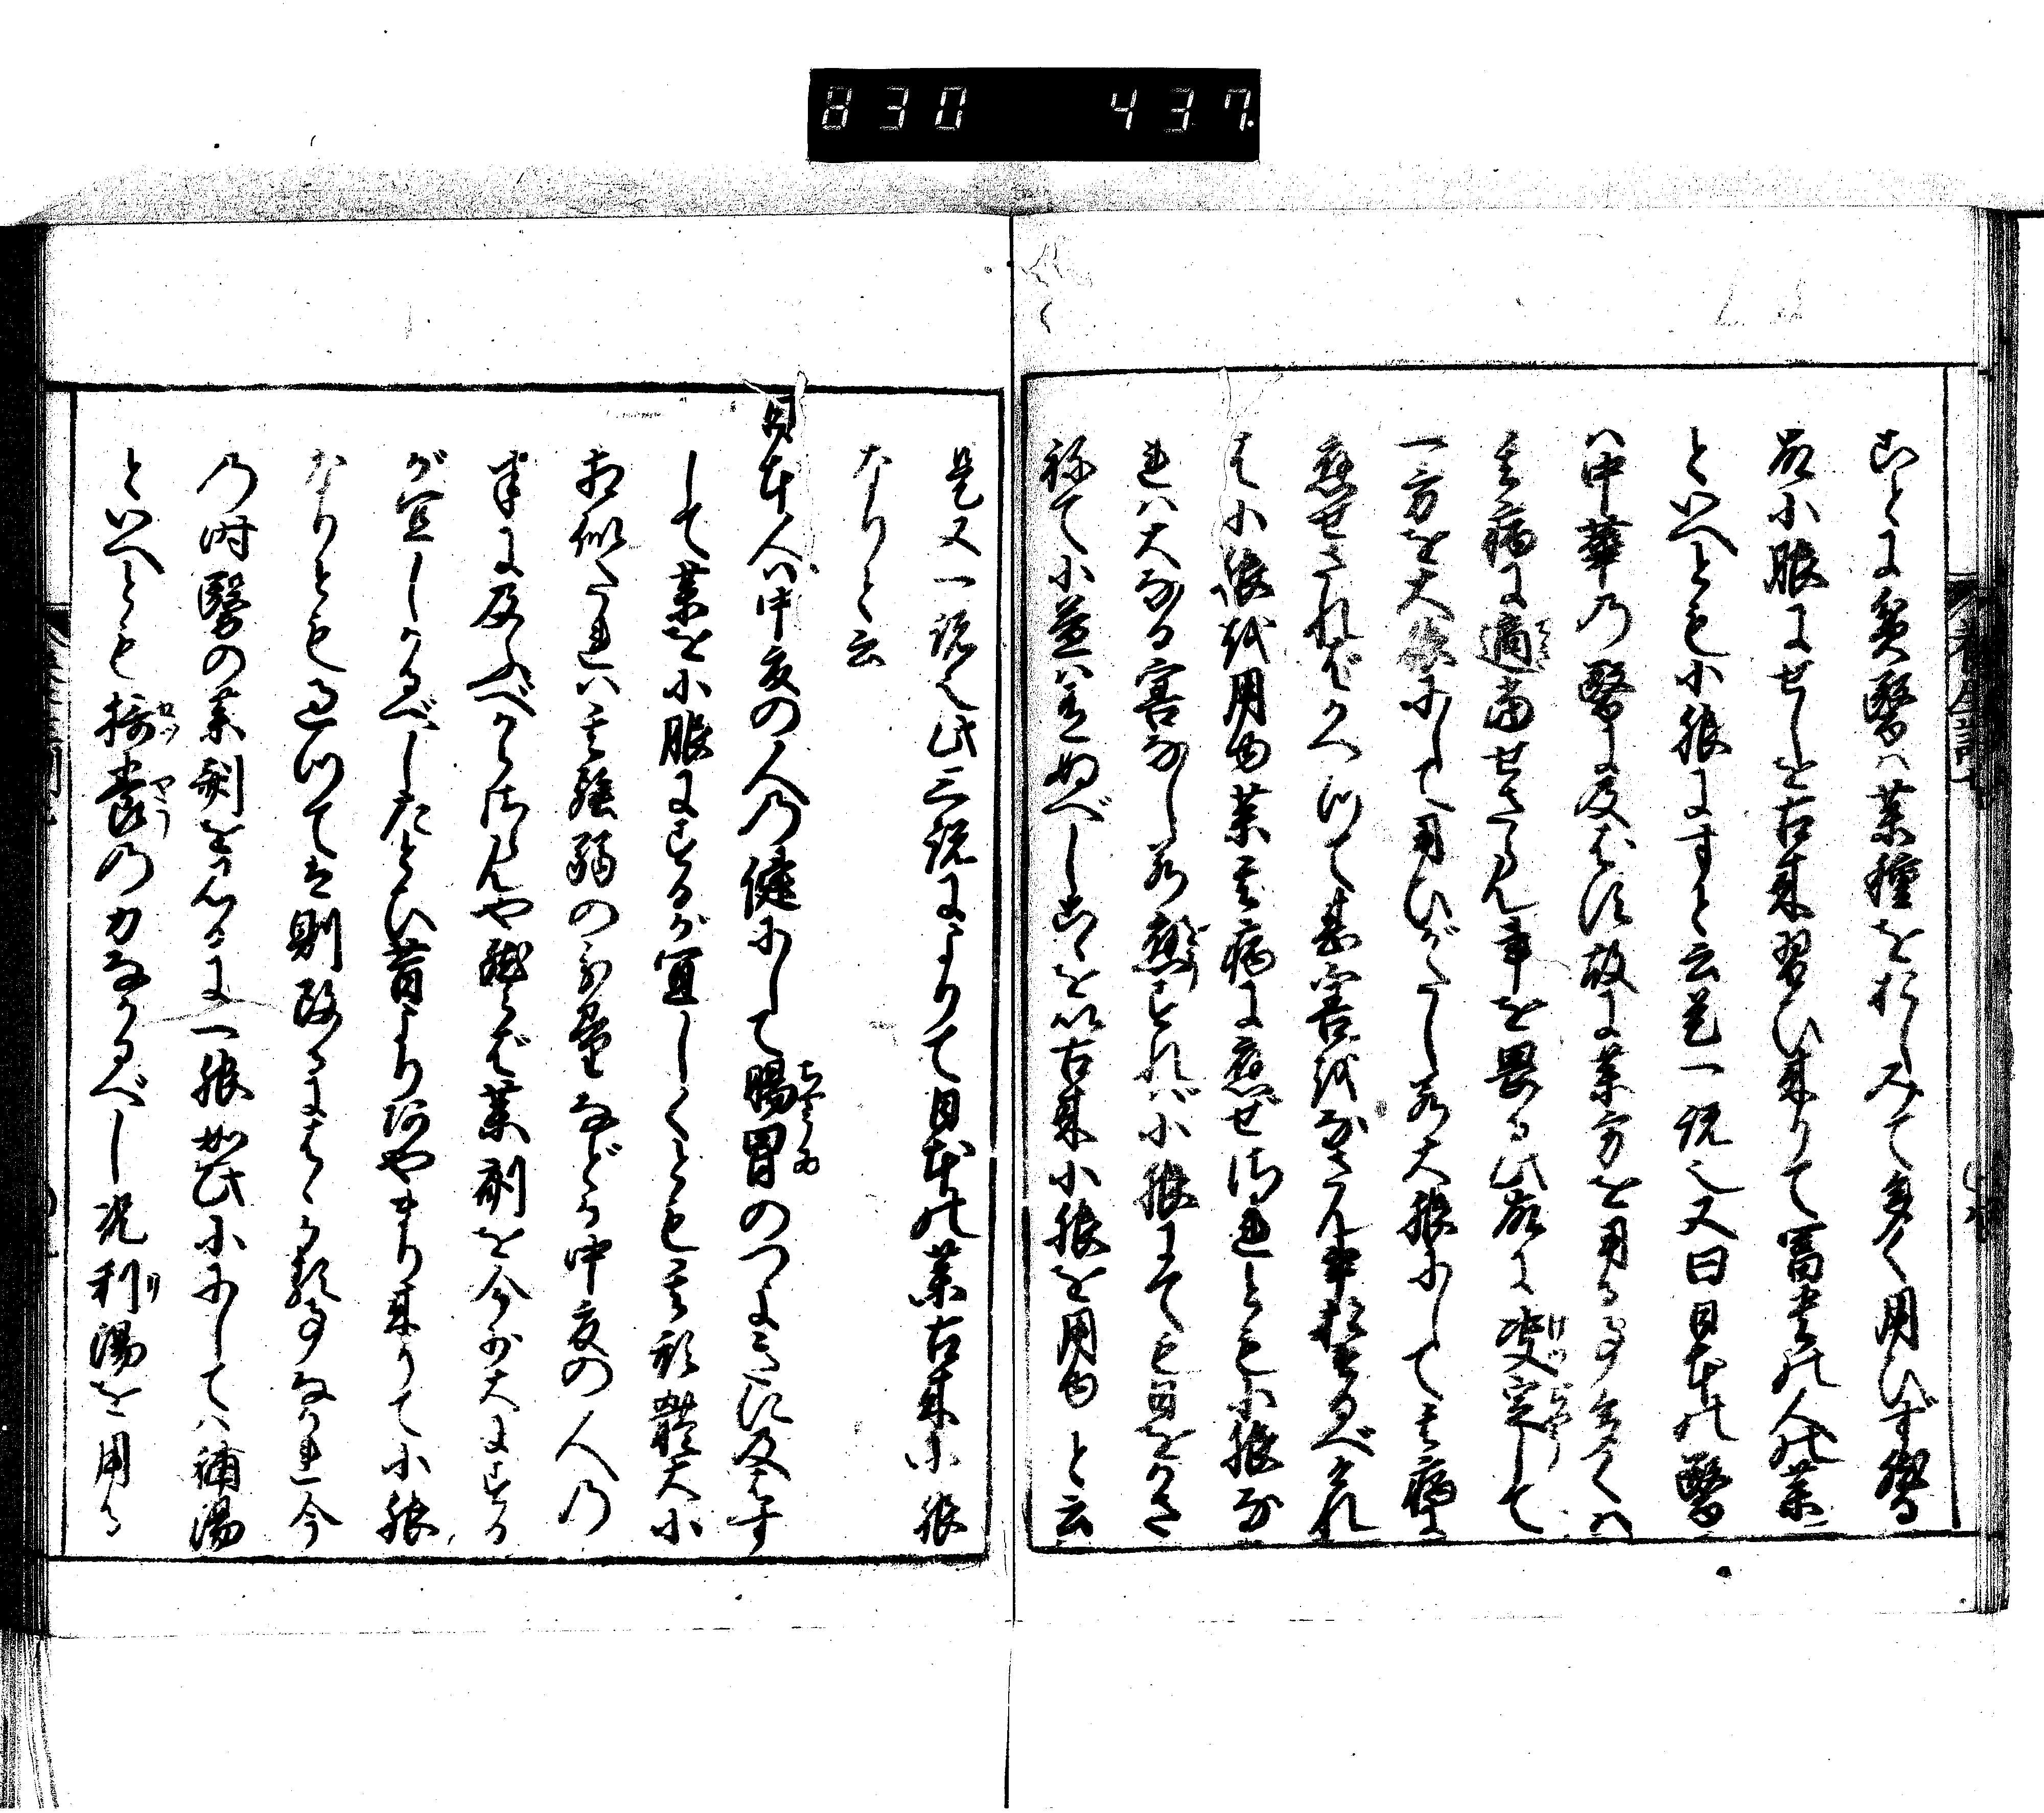 830 437
ことに貧醫ハ薬種をおしみて多く用ひず然る
故小服にせしを古来習ひ来りて冨貴の人の薬
といへども小服にすと云是一説也又曰日本の醫
ハ中華の醫に及ばず故に薬方を用る事多くハ
其病に適當せざらん事を畏る此故に決定して
一方を大服にして用ひがたし若大服にして其病に
應せさればかへつて甚害をなさん事おそるべけれ
ば小服を用ゆ薬其病に應ぜざれとも小服な
れハ大なる害なし若應ずれば小服にても日をかさ
ねて小益ハ有ぬべしこゝを以古来小服を用ゆと云
是又一説也此三説によりて日本の薬古来小服
なりと云
日本人ハ中夏の人の健にして腸胃のつよきに及はす
して薬を小服にするが宜しくとも其形體大小
相似たれハ其強弱の分量などか中夏の人の
半に及ふべからざらんや然らば薬剤を今少大にする
が宜しかるべしたとひ昔よりあやまり来りて小服
なりとも過つては則改るにはゝかる事なかれ今
の時醫の薬剤を見るに一服如此小にしてハ補湯
といへとも接養の力なかるべし况利湯を用る